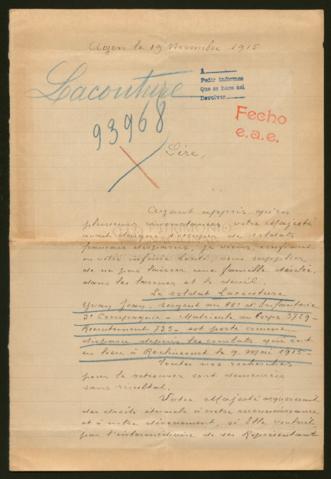 Agen le 19 Novembre 1915
Lacouture
A
Pedir informes
Que se hará así
Devolver
93968
Fecho
e.a.e.
Sire,
Ayant appris qu'en
plusieurs circonstances votre Majesté
avait daigné s'occuper de soldats
français disparus, je viens, confiant
en votre infinie bonté, vous supplier
de ne pas laisser une famille désolée
dans les larmes et le deuil.
Le soldat Lacouture
Yvan Jean, sergent au 18e d'Infanterie
3e Compagnie - Matricule au Corps 3729 -
Recrutement 735 - est porté comme
disparu depuis les combats qui ont
eu lieu à le 9 Mai 1915.
Toutes nos recherches
pour le retrouver sont demeurées
sans résultat.
Votre Majesté acquerrait
des droits éternels à notre reconnaissance
et à notre dévouement, si Elle voulait
par l'intermédiaire de ses Représentants